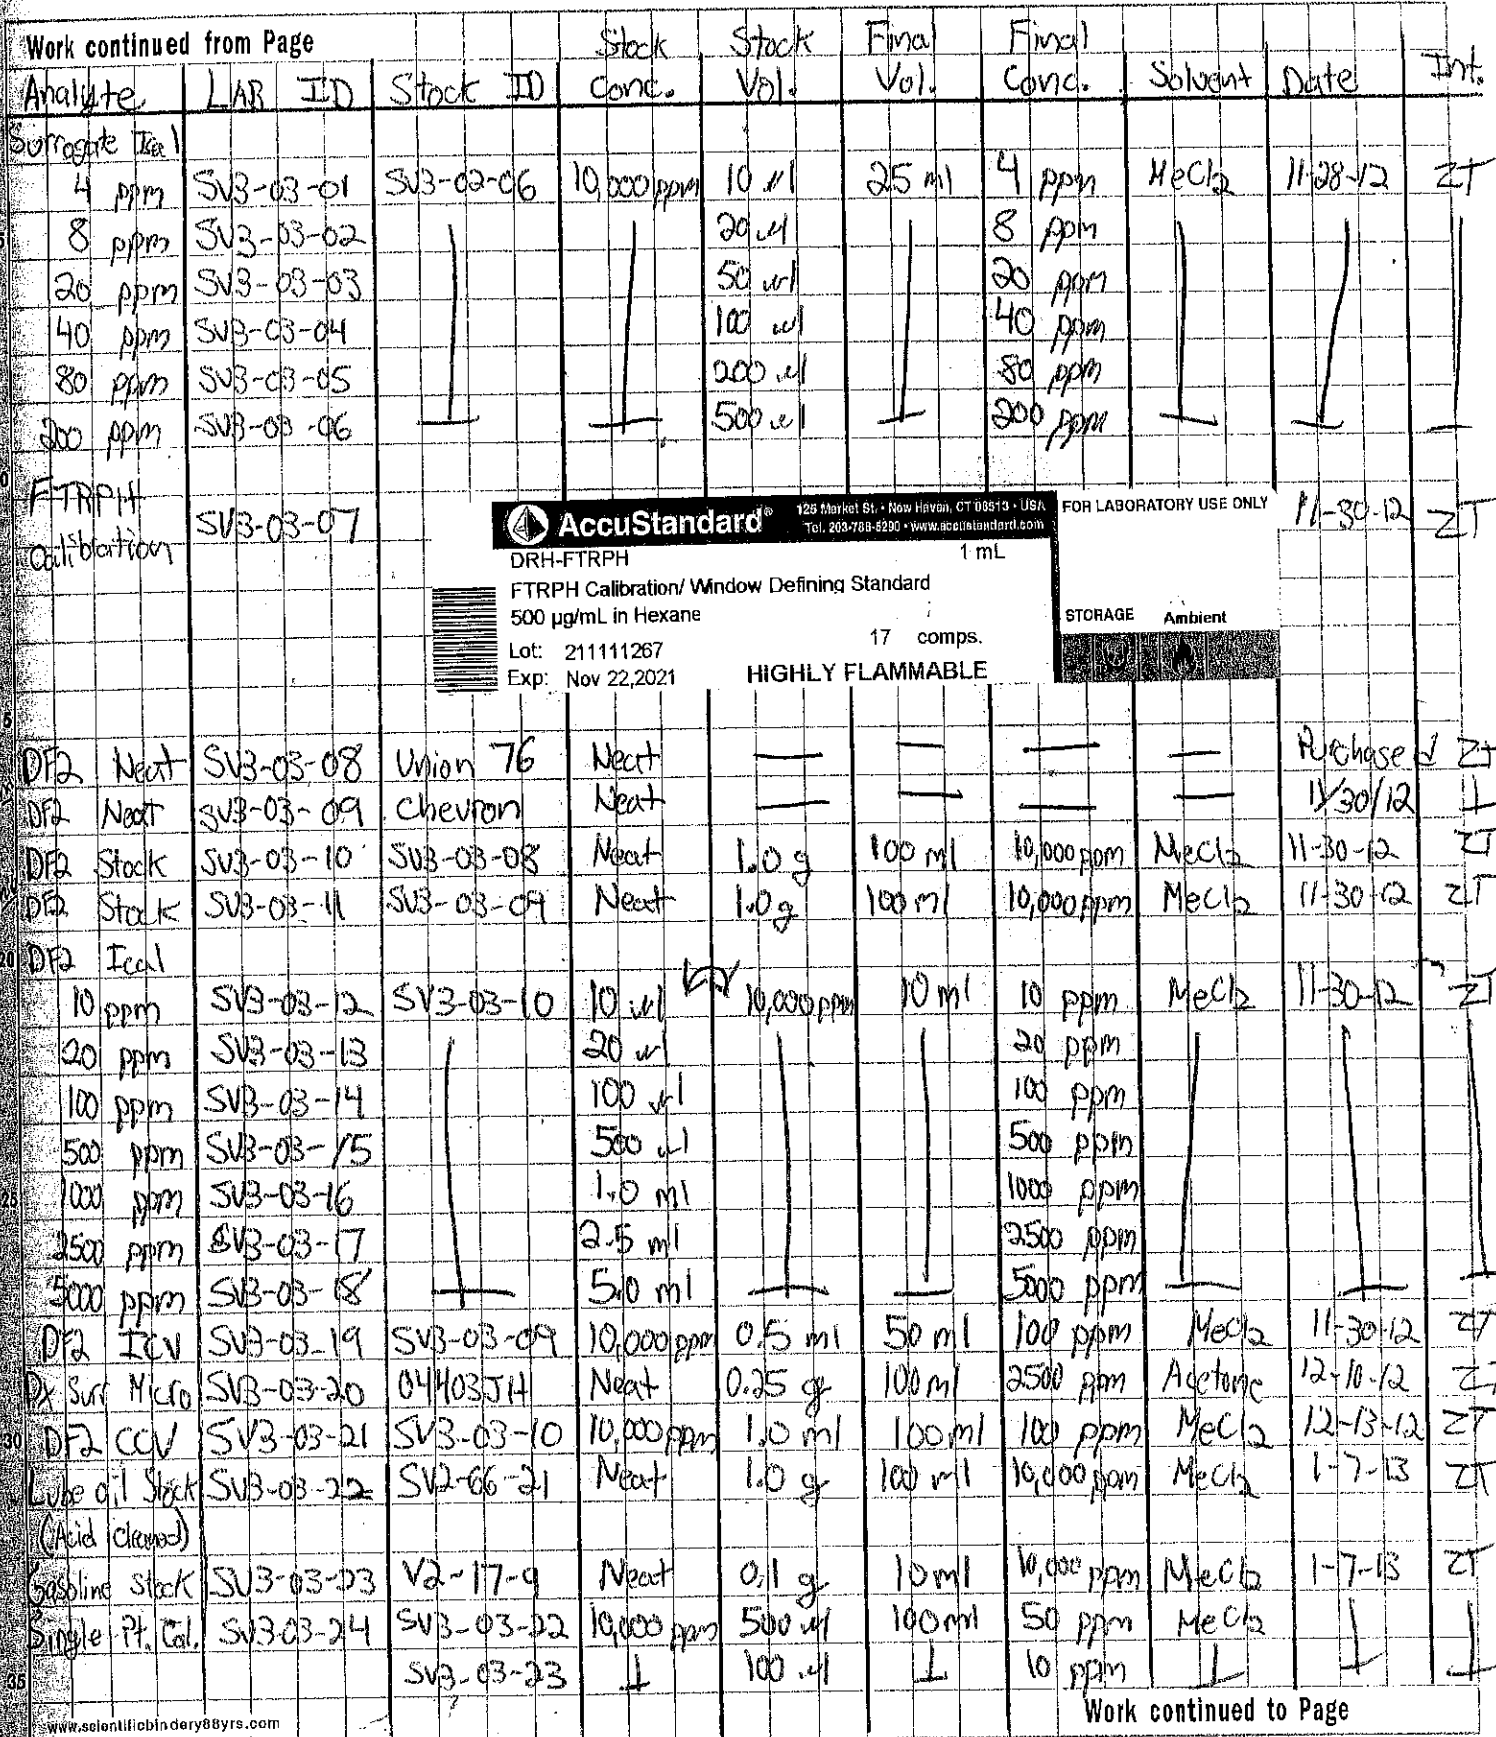 Work continued from Page
Stock Stock Final Final
Analyte LAB ID Stock ID Conc. Vol. Vol. Conc. Solvent Date Int.
Surrogate Ical
4 ppm SV3-03-01 SV3-02-06 10,000 ppm 10 ul 25 ml 4 ppm MeCl2 11-28-12 ZT
8 ppm SV3-03-02 20 ul 8 ppm
20 ppm SV3-03-03 50 ul 20 ppm
40 ppm SV3-03-04 100 ul 40 ppm
80 ppm SV3-03-05 200 ul 80 ppm
200 ppm SV3-03-06 500 ul 200 ppm
FTRPH
SV3-03-07 11-30-12 ZT
AccuStandard® 125 Market St. • New Haven, CT 06513 • USA
Tel. 203-786-5290 • www.accustandard.com
FOR LABORATORY USE ONLY
DRH-FTRPH 1 mL
FTRPH Calibration/ Window Defining Standard
500 µg/mL in Hexane
STORAGE Ambient
17 comps.
Lot: 211111267
Exp: Nov 22,2021 HIGHLY FLAMMABLE
5
DF2 Neat SV3-03-08 Union 76 Neat — — — — Purchased ZT
DF2 Neat SV3-03-09 Chevron Neat — — — — 11/30/12
DF2 Stock SV3-03-10 SV3-03-08 Neat 1.0 g 100 ml 10,000 ppm MeCl2 11-30-12 ZT
DF2 Stock SV3-03-11 SV3-03-09 Neat 1.0 g 100 ml 10,000 ppm MeCl2 11-30-12 ZT
20 DF2 Ical
10 ppm SV3-03-12 SV3-03-10 10 ul 10,000 ppm 10 ml 10 ppm MeCl2 11-30-12 ZT
20 ppm SV3-03-13 20 ul 20 ppm
100 ppm SV3-03-14 100 ul 100 ppm
500 ppm SV3-03-15 500 ul 500 ppm
25 1000 ppm SV3-03-16 1.0 ml 1000 ppm
2500 ppm SV3-03-17 2.5 ml 2500 ppm
5000 ppm SV3-03-18 5.0 ml 5000 ppm
DF2 ICV SV3-03-19 SV3-03-09 10,000 ppm 0.5 ml 50 ml 100 ppm MeCl2 11-30-12 ZT
Dx Surr Micro SV3-03-20 04403JH Neat 0.25 g 100 ml 2500 ppm Acetone 12-10-12 ZT
30 DF2 CCV SV3-03-21 SV3-03-10 10,000 ppm 1.0 ml 100 ml 100 ppm MeCl2 12-13-12 ZT
Lube oil Stock SV3-03-22 SV2-66-21 Neat 1.0 g 100 ml 10,000 ppm MeCl2 1-7-13 ZT
(Acid cleaned)
Gasoline Stock SV3-03-23 V2-17-9 Neat 0.1 g 10 ml 10,000 ppm MeCl2 1-7-13 ZT
Single Pt. Cal. SV3-03-24 SV3-03-22 10,000 ppm 500 ul 100 ml 50 ppm MeCl2
35 SV3-03-23 100 ul 10 ppm
Work continued to Page
www.scientificbindery88yrs.com